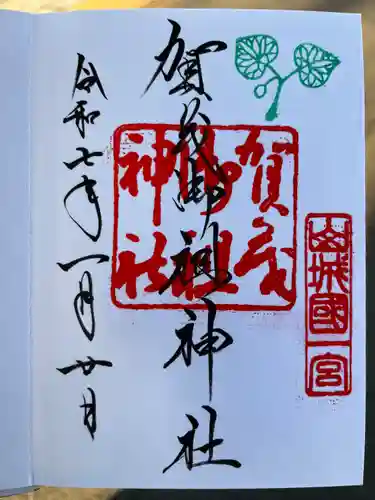 山城國一宮
賀茂御祖神社
賀茂御祖神社
令和七年一月廿日